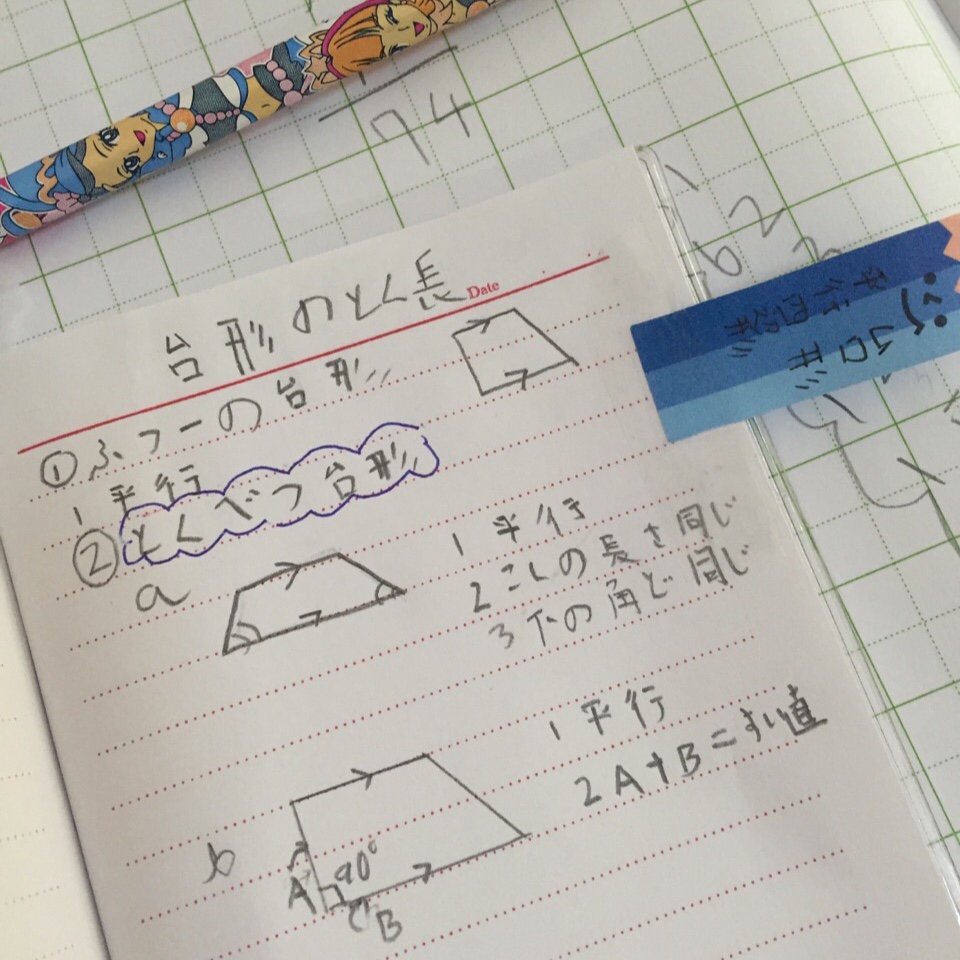 74
台形のとく長
Date
①ふつーの台形
1 平行
②とくべつ台形
a
1 平行
2 こしの長さ同じ
3 下の角ど同じ
b
1 平行
2 A+B=すい直
A 90°
B
62